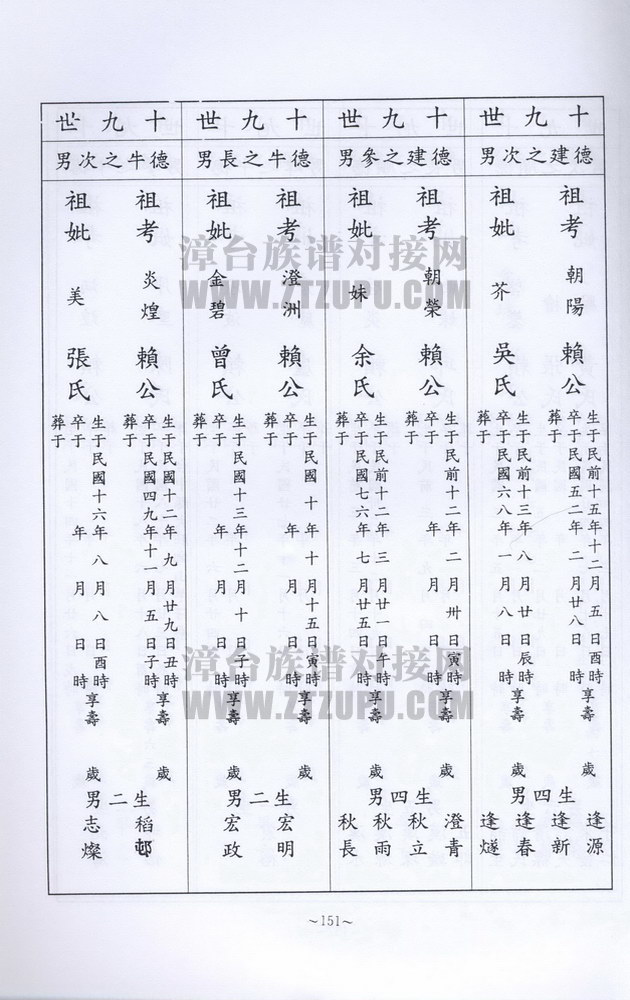 十九世
德建之次男
祖考 朝陽 賴公
生于民前十五年十二月五日酉時
卒于民國五二年二月廿八日時享壽歲
葬于
祖妣 芥 吳氏
生于民前十三年八月廿日辰時
卒于民國六八年一月八日時享壽歲
葬于
生四男
逢源
逢新
逢春
逢燧
十九世
德建之參男
祖考 朝榮 賴公
生于民前十二年二月卅日寅時
卒于年月日時享壽歲
葬于
祖妣 妹 余氏
生于民前十二年三月廿一日午時
卒于民國七六年七月廿五日時享壽歲
葬于
生四男
澄青
秋立
秋雨
秋長
十九世
德牛之長男
祖考 澄洲 賴公
生于民國十年十月十五日寅時
卒于年月日時享壽歲
葬于
祖妣 金碧 曾氏
生于民國十三年十二月十日子時
卒于年月日時享壽歲
葬于
生二男
宏明
宏政
十九世
德牛之次男
祖考 炎煌 賴公
生于民國十二年九月廿九日丑時
卒于民國四九年十一月五日子時享壽歲
葬于
祖妣 美 張氏
生于民國十六年八月八日酉時
卒于年月日時享壽歲
葬于
生二男
稻邨
志燦
~151~
漳台族谱对接网
WWW.ZTZUPU.COM
漳台族谱对接网
WWW.ZTZUPU.COM